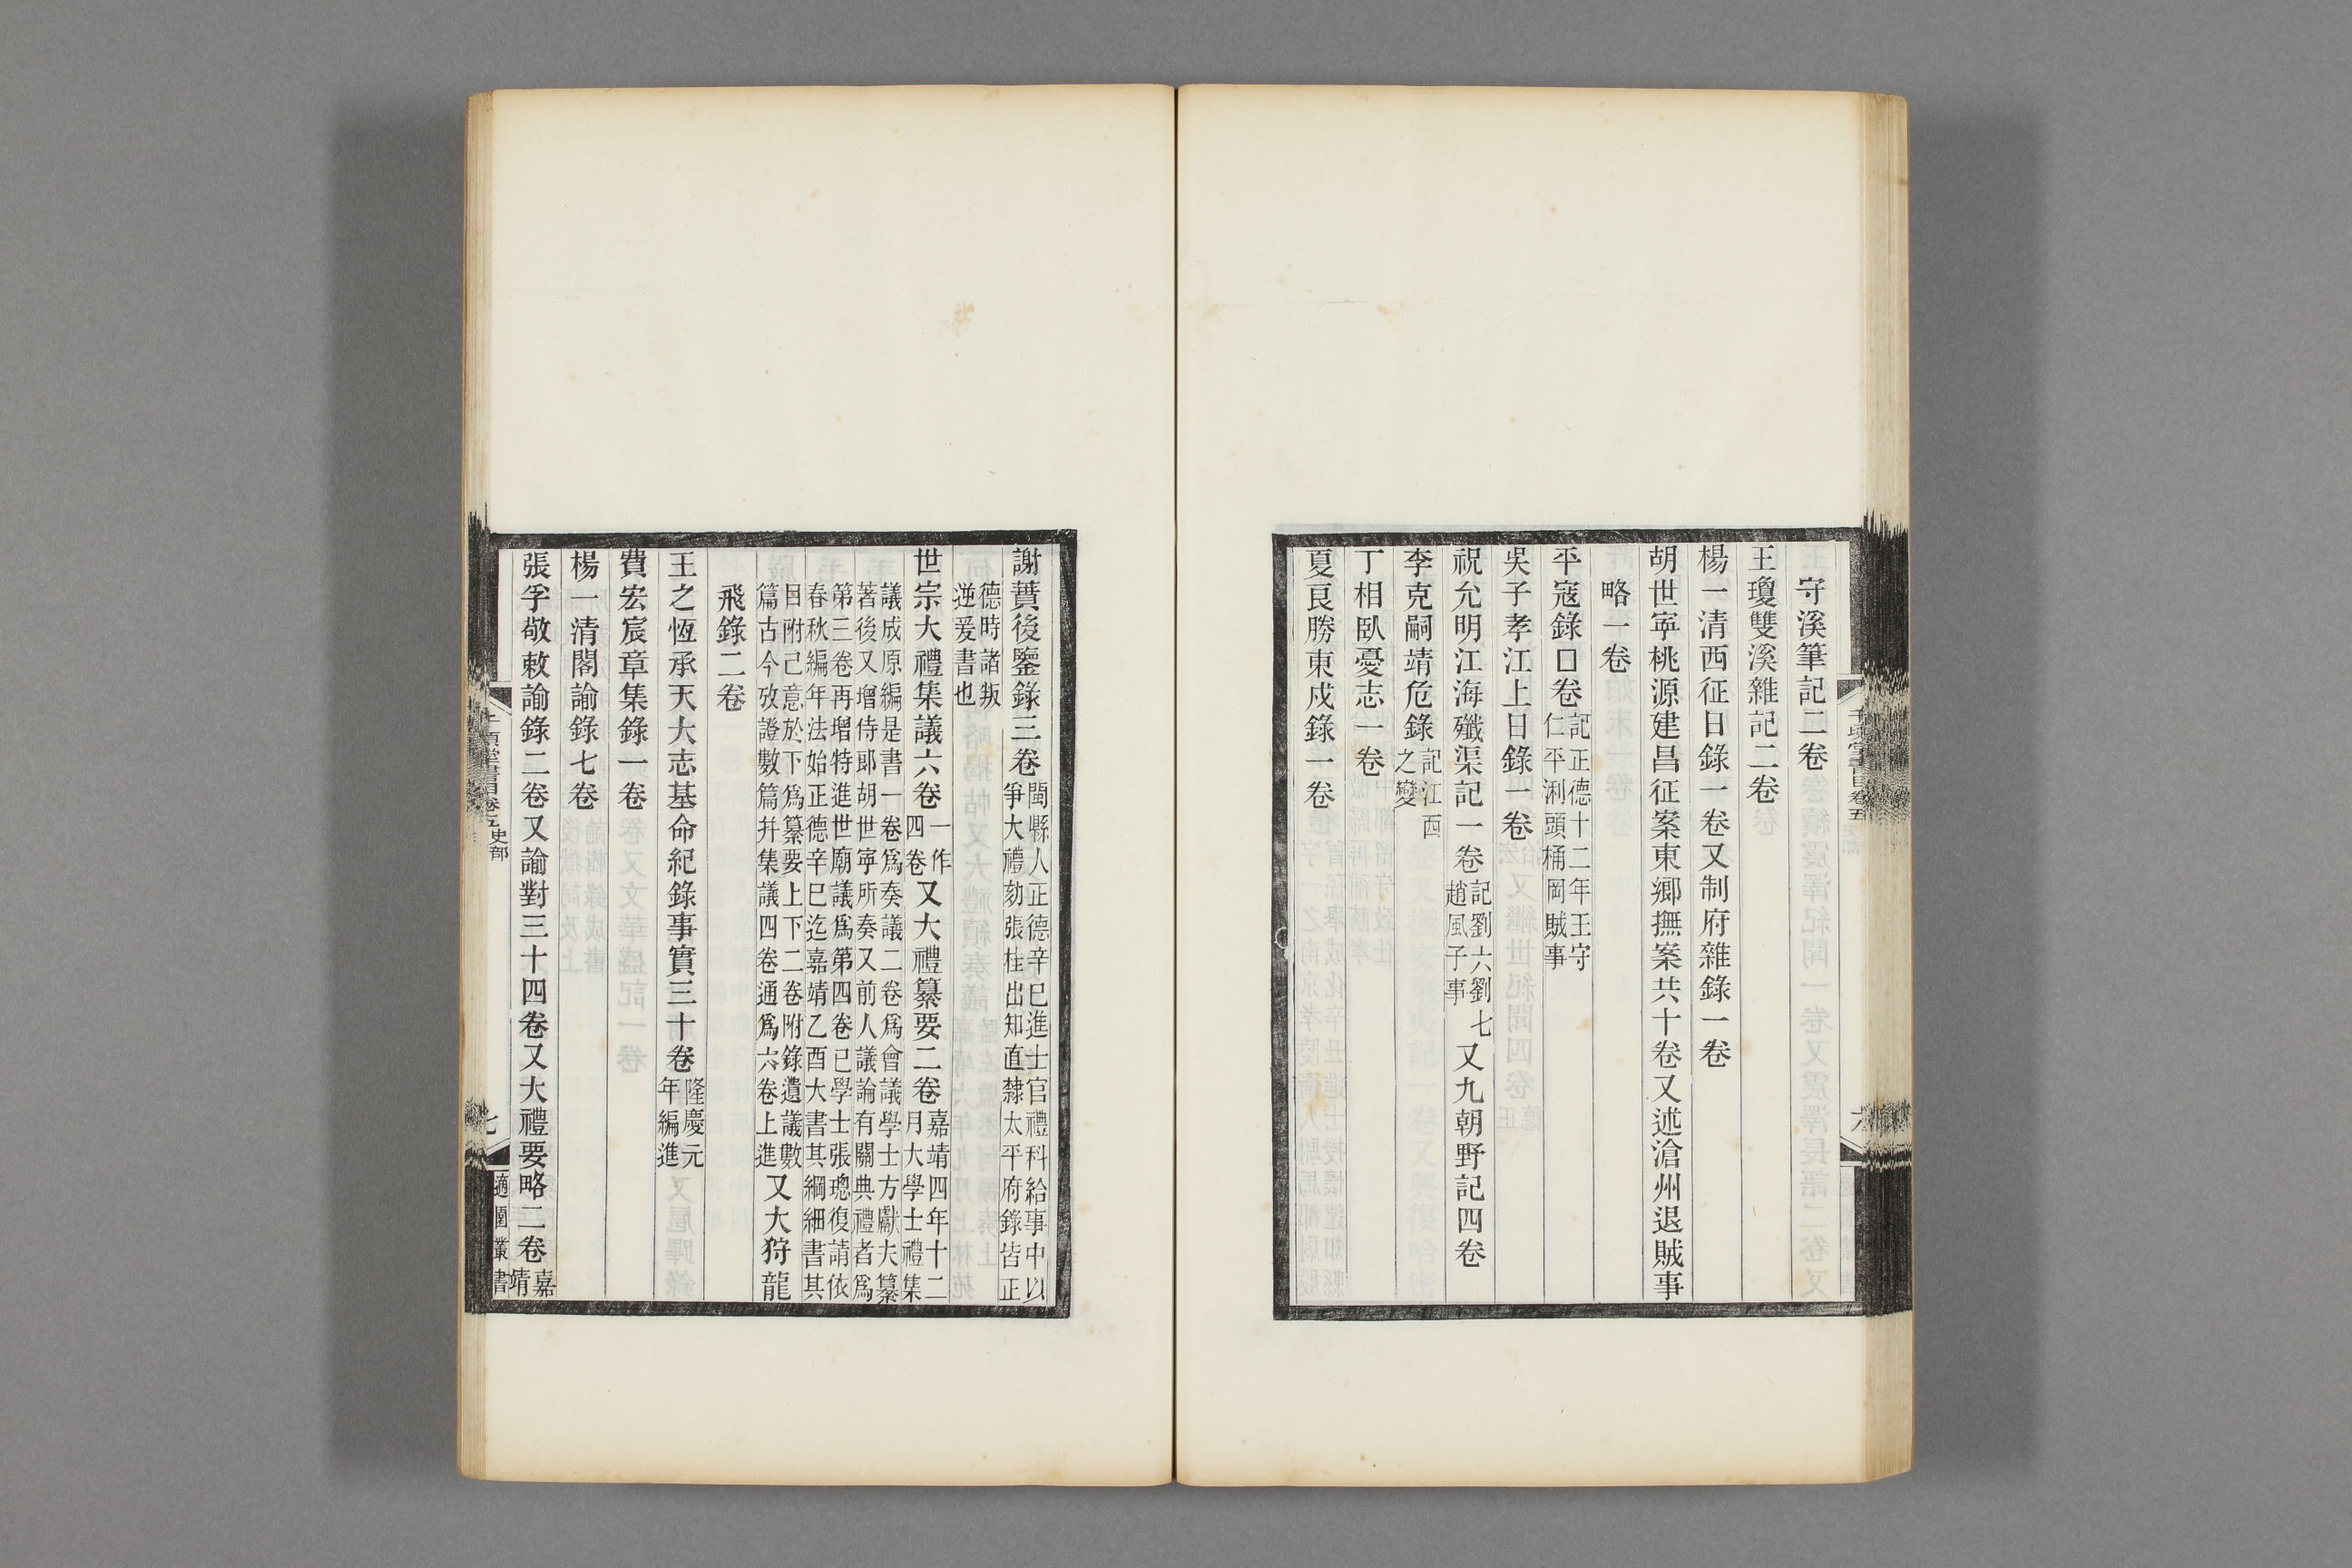 千頃堂書目卷五
六
守溪筆記二卷
王瓊雙溪雜記二卷
楊一清西征日錄一卷又制府雜錄一卷
胡世寧桃源建昌征案東鄉撫案共十卷又述滄州退賊事
略一卷
平寇錄口卷記正德十二年王守仁平浰頭桶岡賊事
吳子孝江上日錄一卷
祝允明江海殲渠記一卷記劉六劉七趙風子事又九朝野記四卷
李克嗣靖危錄記江西之變
丁相臥憂志一卷
夏良勝東戍錄一卷
謝蕡後鑒錄三卷閩縣人正德辛巳進士官禮科給事中以爭大禮劾張桂出知直隸太平府錄皆正
德時諸叛逆爰書也
世宗大禮集議六卷一作四卷又大禮纂要二卷嘉靖四年十二月大學士禮集
議成原編是書一卷爲奏議二卷爲會議學士方獻夫纂著後又增侍郎胡世寧所奏又前人議論有關典禮者爲
第三卷再增特進世廟議爲第四卷已學士張璁復請依春秋編年法始正德辛巳迄嘉靖乙酉大書其綱細書其
目附己意於下爲纂要上下二卷附錄遺議數篇古今攷證數篇幷集議四卷通爲六卷上進又大狩龍
飛錄二卷
王之恆承天大志基命紀錄事實三十卷隆慶元年編進
費宏宸章集錄一卷
楊一清閣諭錄七卷
張孚敬敕諭錄二卷又諭對三十四卷又大禮要略二卷嘉靖
千頃堂書目卷五 史部
七
適園叢書